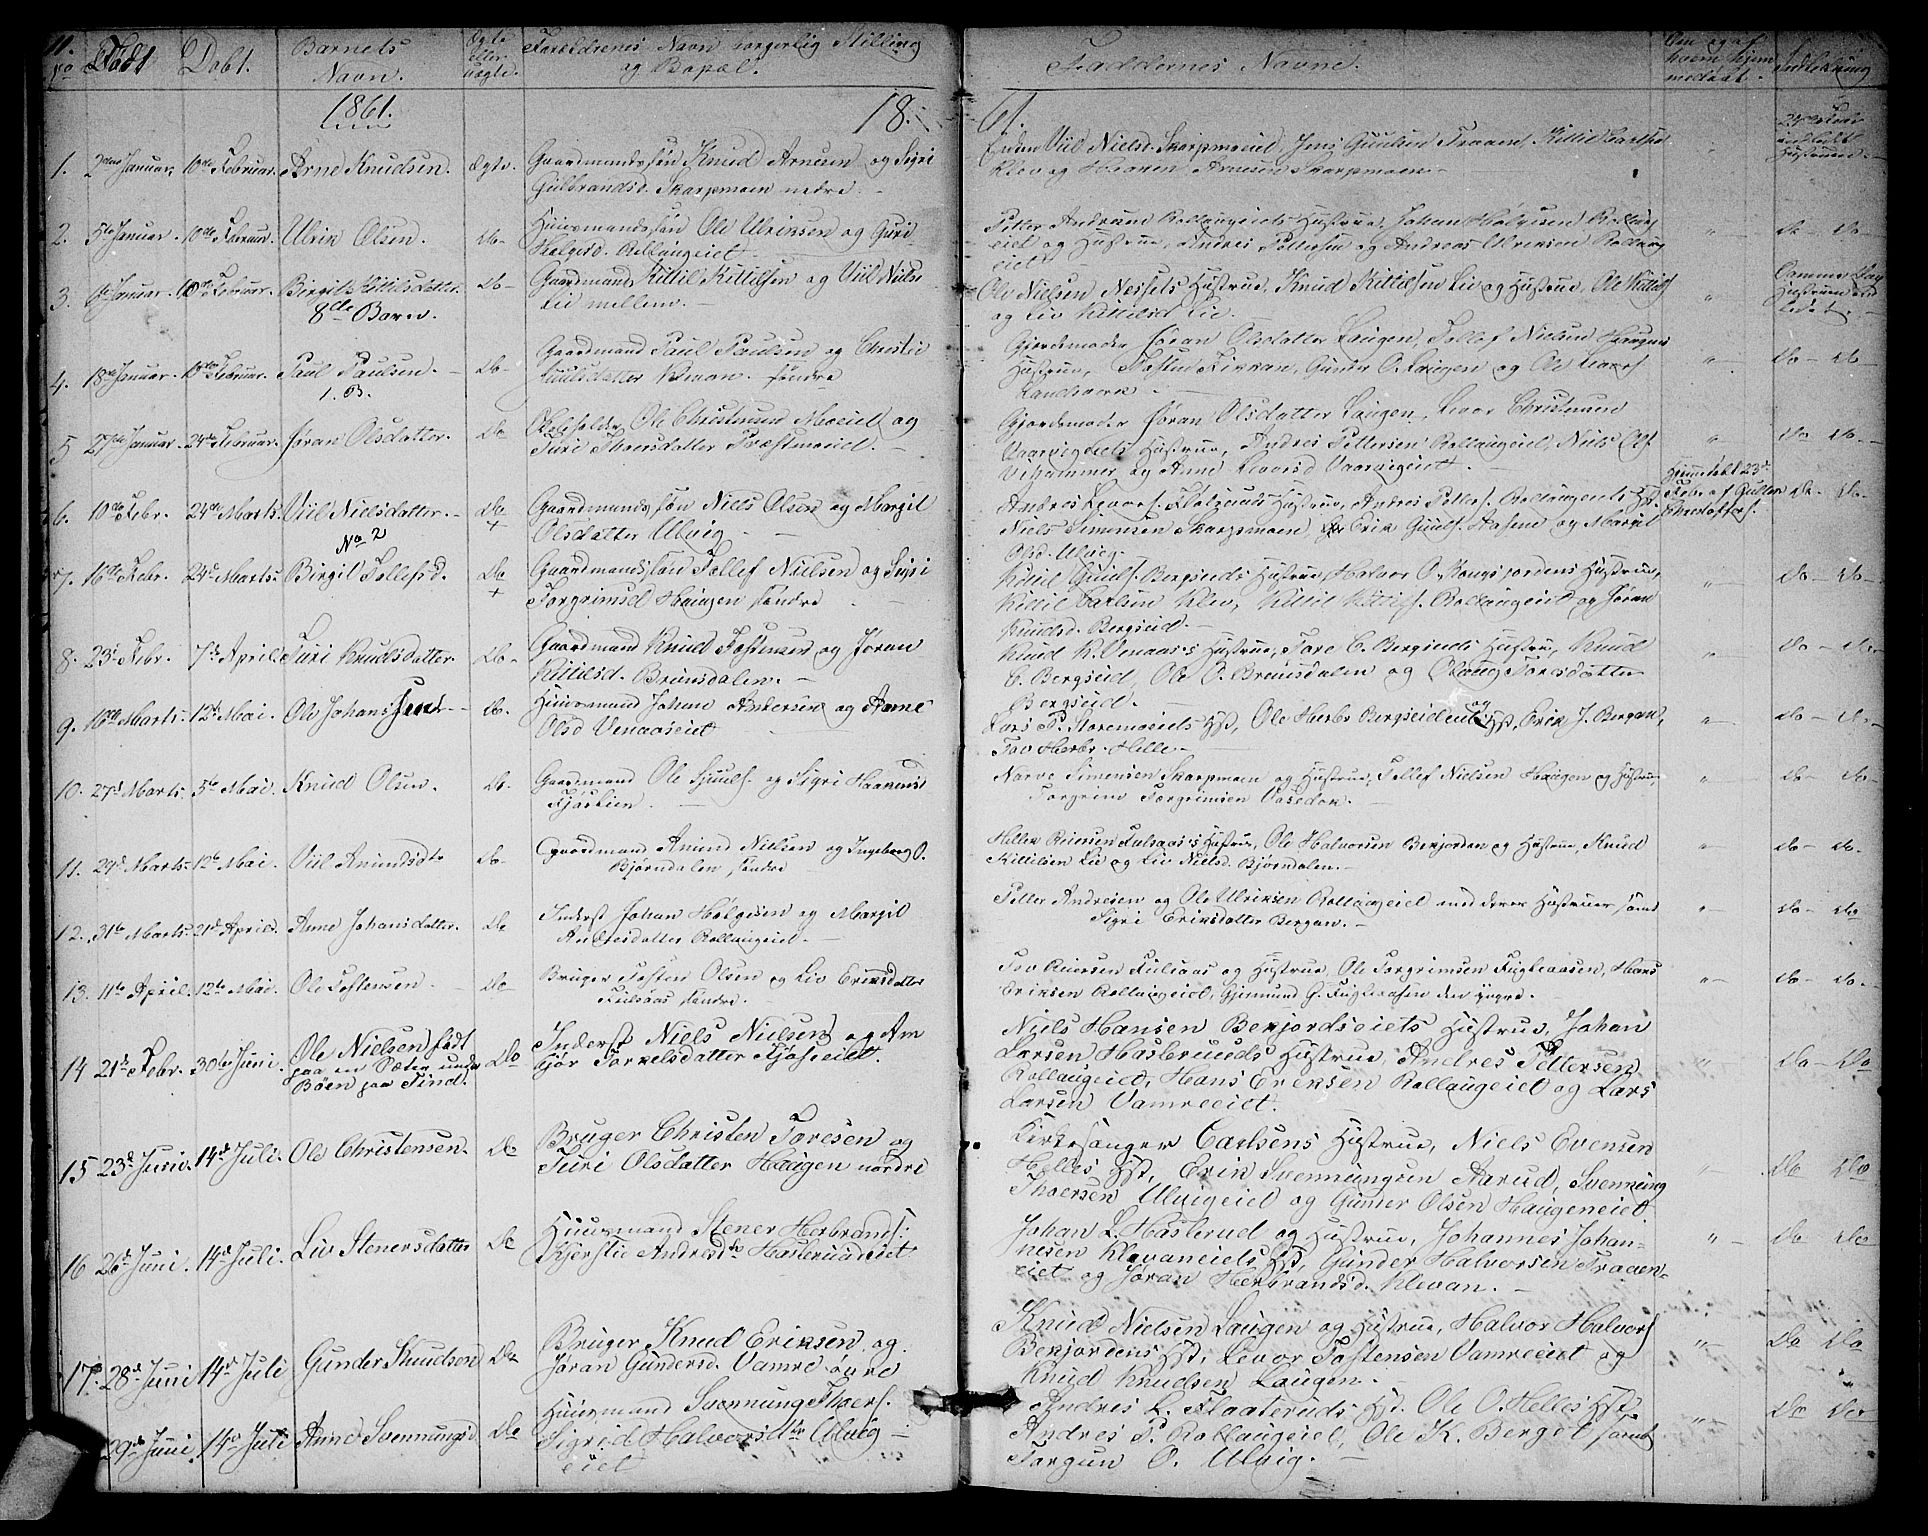 11.
No Født Døbt. Barnets Navn. Ægte eller uægte. Forældrenes Navn borgerlig Stilling og Bopæl. Faddernes Navne. Om og af hvem hjemmedøbt. Anmærkning
1861. 18.. 61.
1. 2den Januar. 10de Februar. Arne Knudsen. Ægte. Gaardmandssøn Knud Arnesen og Sigri
Gulbrandsd. Skarpmoen nedre.
Enken Viil Nielsd. Skarpmoeiet, Jens Gundsen Traaen, Kittil Carlsen
Klev og Haaken Arnesen Skarpmoen.
2. 5te Januar. 10de Februar. Ulrik Olsen. Do Huusmandssøn Ole Ulriksen og Guri
Helgesd. Rollaugeiet.
Petter Andresens Rollaugeiets Hustrue, Johan Helgesen Rollaug
eiet og Hustrue, Andres Pettersen og Andreas Ulriksen Rollaug
eiet
Do Do
3. Januar. 10de Februar. Birgit Kittilsdatter. Do Gaardmand Kittil Kittilsen og Viil Niels
8de Barn. Lie mellem.
Ole Nielsen Næssets Hustrue, Knud Kittilsen Lie og Hustrue, Ole Kittils
og Liv Kittilsd Lie.
4. 18de Januar. 10de Februar. Paul Paulsen. Do Gaardmand Paul Paulsen og Christie
1. B. Juulsdatter Veman. søndre
Gjordemoder Jøran Olsdatter Laugen, Tellef Nielsen Haugens
Hustrue, Tosten Kikkan, Gunder O. Laugen og Ole Livors
Landsverk.
Do Do
5 27de Januar. 24de Februar. Jøran Olsdatter. Do Skoleholder Ole Christensen Moeiet og
Turi Thoersdatter Præstmoeiet.
Gjordemoder Jøran Olsdatter Laugen, Livor Christensen
Vaarvigeiets Hustrue, Andres Pettersen Rollaugeiet, Niels Ols.
Vihammer og Anne Livorsd Vaarvigeiet.
Do Do
6. 10de Febr. 24de Marts. Viil Nielsdatter. Do Gaardmandssøn Niels Olsen og Margit
No 2 Olsdatter Ulvig.
Andres Livors. Flaterunds Hustrue, Andres Petters. Rollaugeiets Hst.
Niels Simensen Skarpmoen, Erik Guuls. Aasene og Margit
Olsd. Ulvig.
Hjemmedøbt 23de
Febr. af Gulleu
Thordatters.
Do Do
7. 16de Febr. 24de Marts. Birgit Tellefsd. Do Gaardmandssøn Tellef Nielsen og Sigri
Torgrimsd Haugen søndre
Kittil Guuls. Bergseids Hustrue, Halvor O. Kongsjordens Hustrue,
Kittil Carlsen Klev, Kittil Kittils. Rollaugeiet og Jøran
Knudsd. Bergseid.
Do Do
8. 23de Febr. 7de April. Turi Knudsdatter. Do Gaardmand Knud Tostensen og Jøran
Kittilsd. Bruusdalen.
Knud K. Venaas's Hustrue, Tore C. Bergseids Hustrue, Knud
C. Bergseid, Ole O. Bruusdalen og Olaug Toresdatter
Bergseid.
Do Do
9. 10de Marts. 12te Mai. Ole Johanssen. Do. Huusmand Johan Andersen og Anne
Olsd Venaaseiet
Lars P. Storemoeiets Hst, Ole Herbr Bergseiden og Hst, Erik J. Bergan,
Tov Herbr. Helle.
Do Do
10. 27de Marts. 5te Mai. Knud Olsen. Do. Gaardmand Ole Sjuuls. og Sigri Haakensd
Fjøslien.
Narve Simensen Skarpmoen og Hustrue, Tellef Nielsen Haugen og Hustrue,
Torgrim Torgrimsen Aasedok.
Do Do
11. 29de Marts 12te Mai. Viil Amundsdtr Do. Gaardmand Amund Nielsen og Ingeborg O.
Bjørndalen søndre
Hellek Reiersen Fulsaas's Hustrue, Ole Halvorsen Bekjorden og Hustrue, Knud
Kittilsen Lie og Liv Nielsd. Bjørndalen.
Do Do.
12. 31te Marts 21de April. Anne Johansdatter. Do Inderst Johan Helgesen og Margit
Andresdatter Rollaugeiet.
Petter Andresen og Ole Ulriksen Rollaugeiet med deres Hustruer samt
Sigri Eriksdatter Bergan.
Do Do
13. 11te April. 12te Mai. Ole Tostensen Do Bruger Tosten Olsen og Liv Eriksdatter
Fulsaas søndre.
Tov Reiersen Fulsaas og Hustrue, Ole Torgrimsen Fugleaasen, Hans
Eriksen Rollaugeiet, Gjermund G. Fugleaasen den yngre.
Do Do.
14 21de Febr. 30te Juni. Ole Nielsen født
paa en Sæter under
Bøen paa Tind. Do Inderst Niels Nielsen og Am
bjør Torkelsdatter Fjøseiet.
Niels Hansen Bekjordseiets Hustrue, Johan
Larsen Hasleruuds Hustrue, Andres Pettersen
Rollaugeiet, Hans Eriksen Rollaugeiet og Lars
Larsen Vamreeiet.
Do Do
15 23de Juni. 14de Juli. Ole Christensen. Do Bruger Christen Toresen og
Turi Olsdatter Haugen nordre
Kirkesanger Carlsens Hustrue, Niels Evensen
Helles Hst, Erik Svennungsen Aarud, Svennung
Thoersen Ulvigeiet og Gunner Olsen Haugeneiet
Do Do
16 26de Juni. 14de Juli. Liv Stenersdatter Do Huusmand Stener Herbrands.
Kjerstie Andresdtr Hasleruudeiet
Johan L. Haslerud og Hustrue, Johannes Johan-
nesen Klevaneiets Hst, Gunder Halvorsen Traaen-
eiet og Jøran Herbrandsd. Klevan.
Do Do
17. 28de Juni 14de Juli Gunder Knudsen Do Bruger Knud Eriksen og
Jøran Gundersd. Vamre øvre
Knud Nielsen Laugen og Hustrue, Halvor Halvors
Bekjordens Hst, Livor Tostensen Vamreeiet og
Knud Knudsen Laugen.
Do Do
29de Juni 14de Juli Anne Svennungsd Do Huusmand Svennung Thoers.
Sigrid Halvorsdtr Ulvig
eiet
Andres L. Flaateruds Hst. Ole O. Helles Hst.
Andres P. Rollaugeiet, Ole K. Berget samt
Torgun O. Ulvig.
Do Do